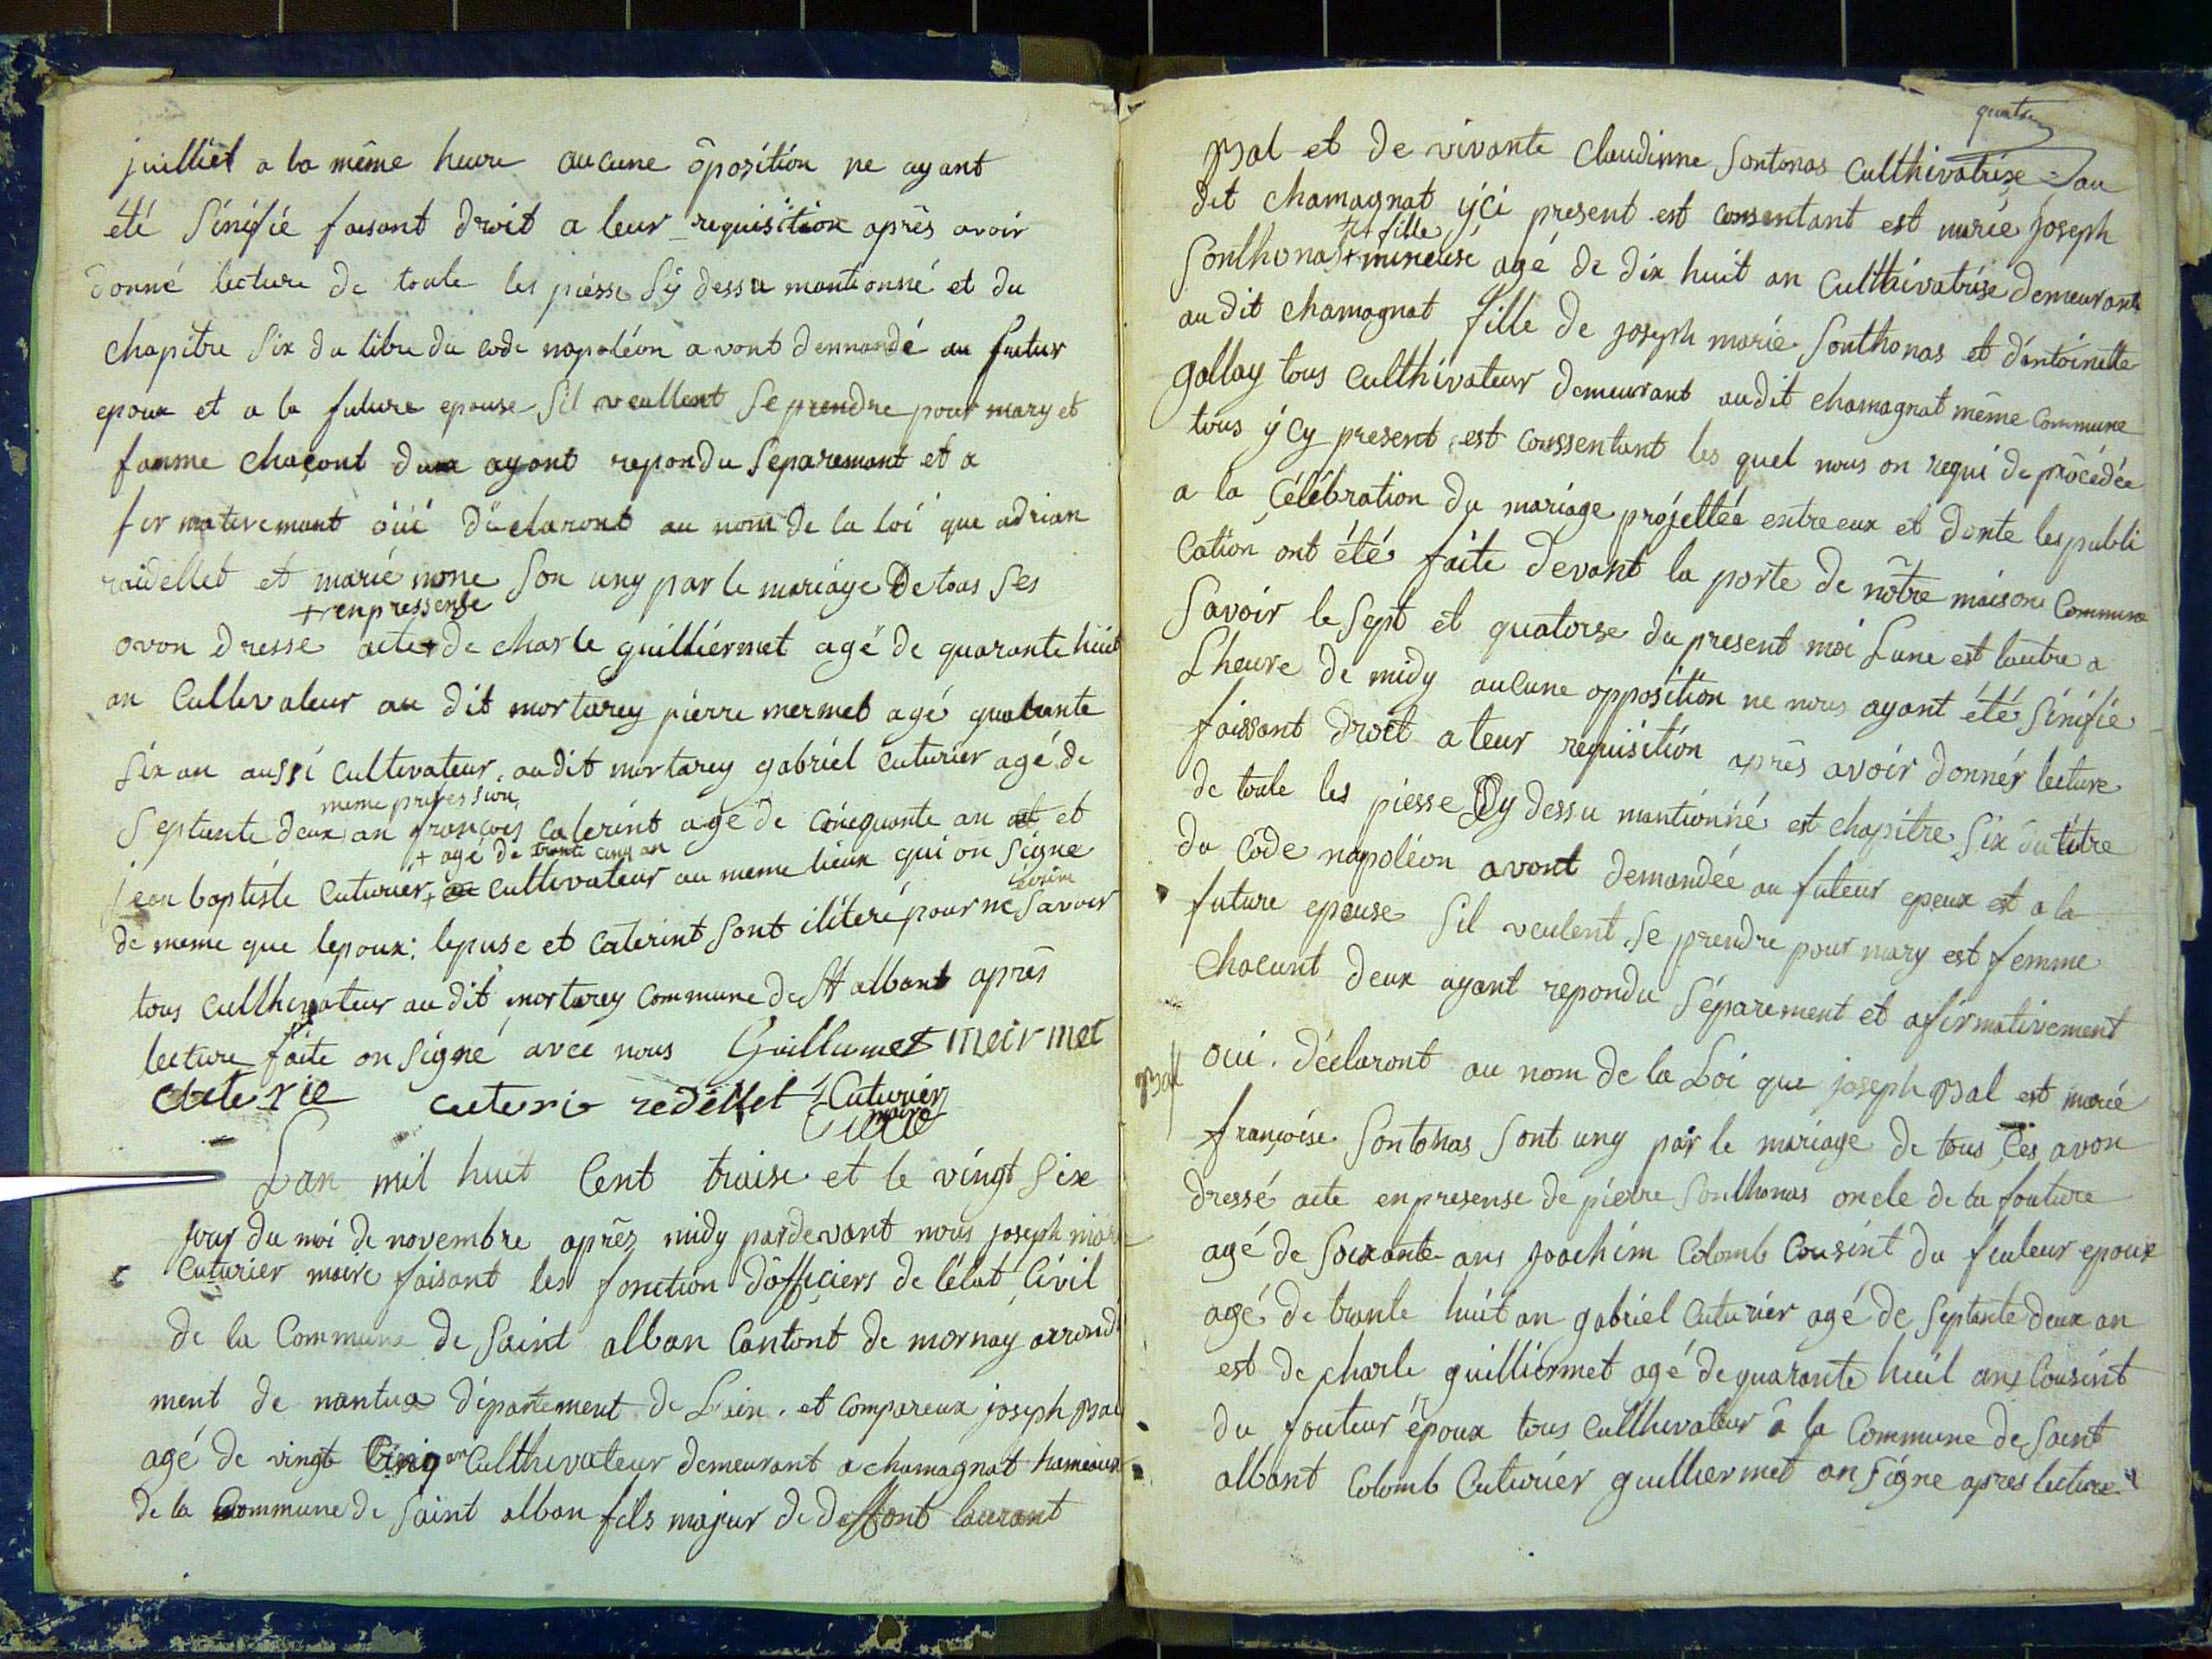 juilliet a la même heure aucune ôposition ne ayant
été Sinifié faisant droit a leur requisition après avoir
donné lecture de toute les piesse Sÿ dessu mantionné et du
chapitre Six du libre du code napoléon avont demmandé au futur
epoux et a la future epouse Sil veullent Se prendre pour mary et
famme chaçont deux ayant repondu Separemant et a
firmativemant ôüi déclaront au nom de la loi que adrian
raidellet et marie none Son uny par le mariage De tous Ses
+ enpressense
avon dresse acte + de charle guilliermet agé de quarante huit
an Cultivateur au dit mortarey pierre mermet agé quarante
Six an aussi Cultivateur audit mortarey gabriel Cuturier agé de
meme profession
Septante deux an françois Caterint agé de cincquante an et et
+ agé de trante cinq an
jean baptiste Cuturier + cultivateur au meme lieux qui on Signe
écrire
de meme que lepoux: lepuse et Caterint Sont ilitéré pour ne Savoir
tous Culthivateur au dit mortarey Commune de St albant après
lecture faite on Signé avec nous Guillumet meirmet
cuterie cuterie redellet Cuturier
maire
Lan mil huit Cent traise et le vingt Six
jour du moi de novembre après midy pardevant nous joseph marie
Cuturier maire faisant les fonction dôfficiers de létat Civil
de la Commune de Saint alban Cantont de mornay arrondi
ment de nantua département de Lain et Compareux joseph Bal
agé de vingt Cinq an Culthivateur demeurant a chamagnat hameaux
de la Commune de Saint alban fils majur de deffont laurant
quatre
Bal et de vivante Claudinne Sontonas Culthivatrise au
dit chamagnat ÿci present est consentant est marie joseph
+ fille
Sonthonas + mineuse agé de dix huit an Culthivatrise demeurante
au dit chamagnat fille de joseph marie Sonthonas et d'antoinette
gallay tous Culthivateur demeurant audit chamagnat même Commune
tous ÿ Cy present est conssentant les quel nous on requi de procédée
a la Célébration du mariage projettée entre eux et donte les publi
Cation ont été faite devant la porte de nôtre maison Commune
Savoir le Sept et quatorse du present moi Lune est lautre a
Lheure de midy aucune opposition ne nous ayant été Sinifie
faissant droit a leur requisition après avoir donnér lecture
de toute les piesse Cy dessu mantionné est chapitre Six du titre
du Code napoléon avont demandée au futeur epoux est a la
future epouse Sil veulent Se prendre pour mary est femme
chacunt deux ayant repondu Séparement et afirmativement
Bal
oui. déclaront au nom de la Loi que joseph Bal est marie
françoise Sontonas Sont uny par le mariage de tous Ces avon
dressé acte enpresense de pierre Sonthonas oncle de la fouture
agé de Soixante ans joachim Colomb Cousint du futeur epoux
agé de trante huit an gabriel Cuturier agé de Septante deux an
est de charle guilliermet agé de quarante huit ans Cousint
du fouteur époux tous Culthivateur â la Commune de Saint
albant Colomb Cuturier guilliermet on Signe apres lecture